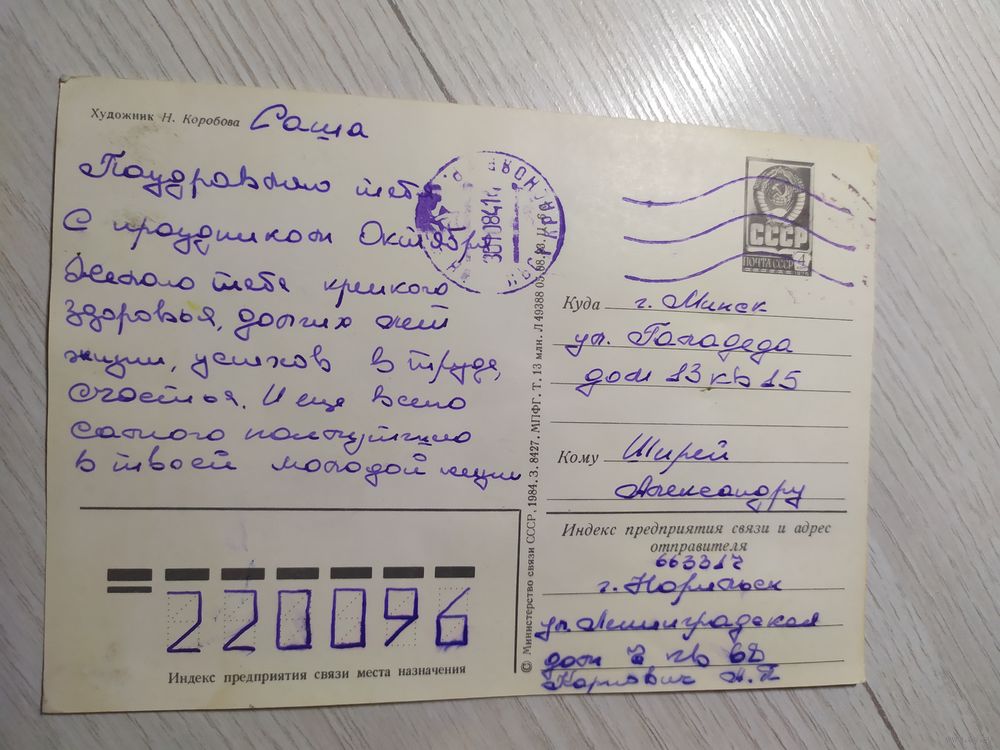 Художник Н. Коробова
Саша
Поздравляю тебя
С праздником Октября
Желаю тебе крепкого
здоровья, долгих лет
жизни, успехов в труде,
счастья. И еще всего
самого наилучшего
в твоей молодой жизни
30 1084 14
КРАСНОЯРСК
СССР
ПОЧТА СССР
4
Куда г. Минск
ул. Голодеда
дом 13 кв 15
Кому Ширей
Александру
Индекс предприятия связи и адрес
отправителя
663317
г. Норильск
ул. Ленинградская
дом 7 кв 62
Карпович А. П
© Министерство связи СССР. 1984. З. 8427. МПФГ. Т. 13 млн. Л 49388 05.08.83.
220096
Индекс предприятия связи места назначения